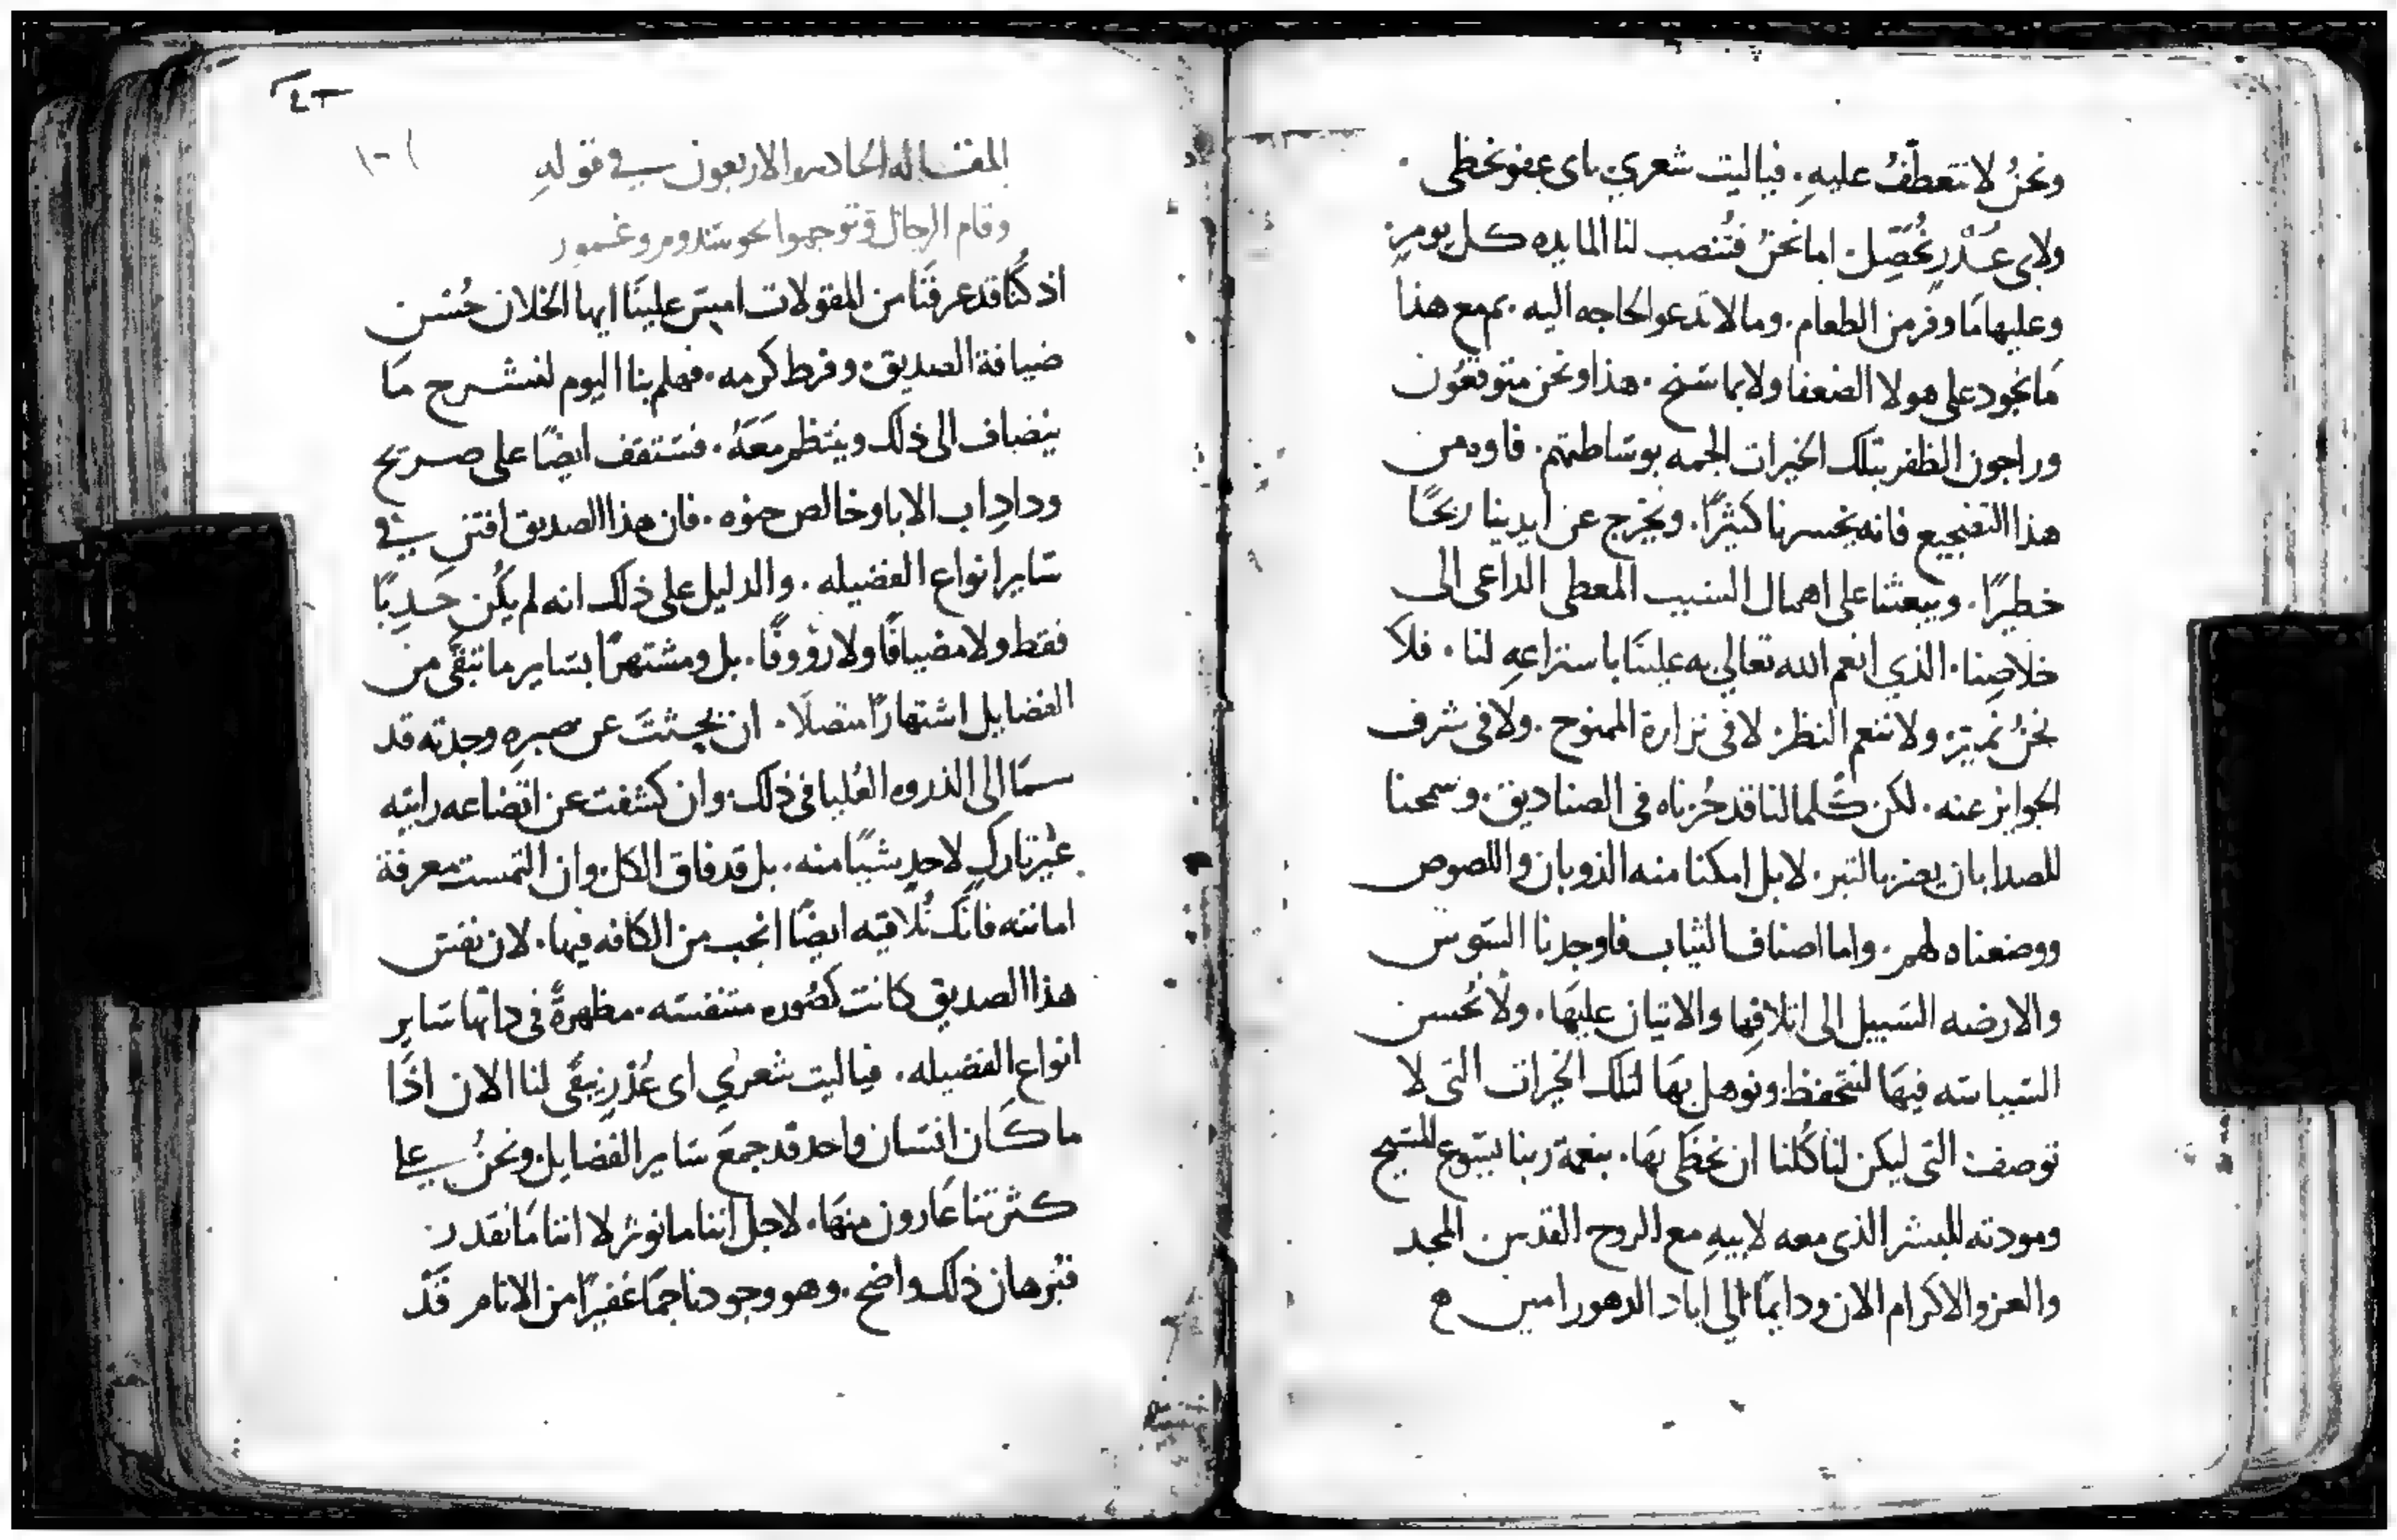 ونحنُ لا نتعطّفُ عليهِ. فياليت شعري باى عفو نخظى.
ولاى عُذْرٍ نُحَصّل. اما نحنُ فتُنصب لنا المايده كل يومٍ.
وعليها مَا وفر من الطعام. وما لا تدعوا الحاجه اليه. ثم مع هذا
مَا نجود على هولا الضعفا ولا بما سَنح. هذا ونحن متوقعُون
وراجون الظفر بتلك الخيرات الجمه بوسَاطتهم. فاوه من
هذا التضجيع فانه يخسرنا كثيرًا. ويخرج عن ايدينا ربحًا
خطيرًا. ويبعثنا على اهمال السَبب المعطى الداعى الى
خلاصِنا. الذي انعم الله تعالي به علينَا باستزاعهِ لنا. فلا
نحنُ نميّز ولا ننعم النظر لا فى نزارة الممنوح. ولا فى شرف
الجوايز عنه. لكن كُلما لنا قد حُزناه فى الصناديق. وسمحنا
للصدا بان يعتز بالتبر. لا بل امكنا منه الذوبان واللصوص
ووضعناه لهم. واما اصناف الثياب فاوجدنا السَوس
والارضه السَبيل الى اتلافِها والاتيان عليهَا. ولا نُحسن
السَياسَه فيهَا لتتحفظ ونوهل بهَا لتلك الخيرات التى لا
توصف التى ليكن لنا كُلنا ان نخظَى بهَا. بنعمة ربنا يسَوع المسَيح
ومودته للبشر الذى معه لابيهِ مع الروح القدس المجد
والعز والاكرام الان ودايمًا الي اباد الدهور امين
٤٢
١٠١
المقاله الحاديه والاربعون في قولهِ
وقام الرجال وتوجهوا نحو سَدوم وغمور
اذ كُنا قد عرفنَا من المقولات امسَ علينَا ايها الخلان حُسَن
ضيافة الصديق وفرط كرمه. فهلم بنا اليوم لنشرح مَا
ينضاف الى ذلك وينتظم معَهُ. فسَنقف ايضًا على صريح
ودادِ اب الابا وخالص حنوه. فان هذا الصديق افتنى في
سَاير انواع الفضيله. والدليل على ذلك انه لم يكُن حَدِبًا
فقط ولا مضيافًا ولا رؤوفًا. بل ومشتهرًا بسَاير ما تبقّى من
الفضايل اشتهارًا متصلًا. ان بحثتَ عن صبرهِ وجدته قد
سمَا الى الذروه العُليا فى ذلك. وان كشفت عن اتضاعه رايته
غيْر تاركٍ لاحدٍ شيئًا منه. بل قد فاق الكل. وان التمست معرفة
امانته فانَك تُلاقيه ايضًا انجب من الكافه فيها. لان نفسَ
هذا الصديق كانت كصُوره متنفسَه. مظهرةً فى داتها سَاير
انواع الفضيله. فياليت شعري اى عُذْرٍ يبقَى لنا الان اذَا
ما كَان انسَان واحد قد جمعَ سَاير الفضايل. ونحنُ علي
كثرتنا عَارون منهَا. لاجل اننا ما نوثر لا اننا مَا نقدر.
فبُرهان ذلك واضح. وهو وجودنا جمًا غفيرًا من الانام قَدْ